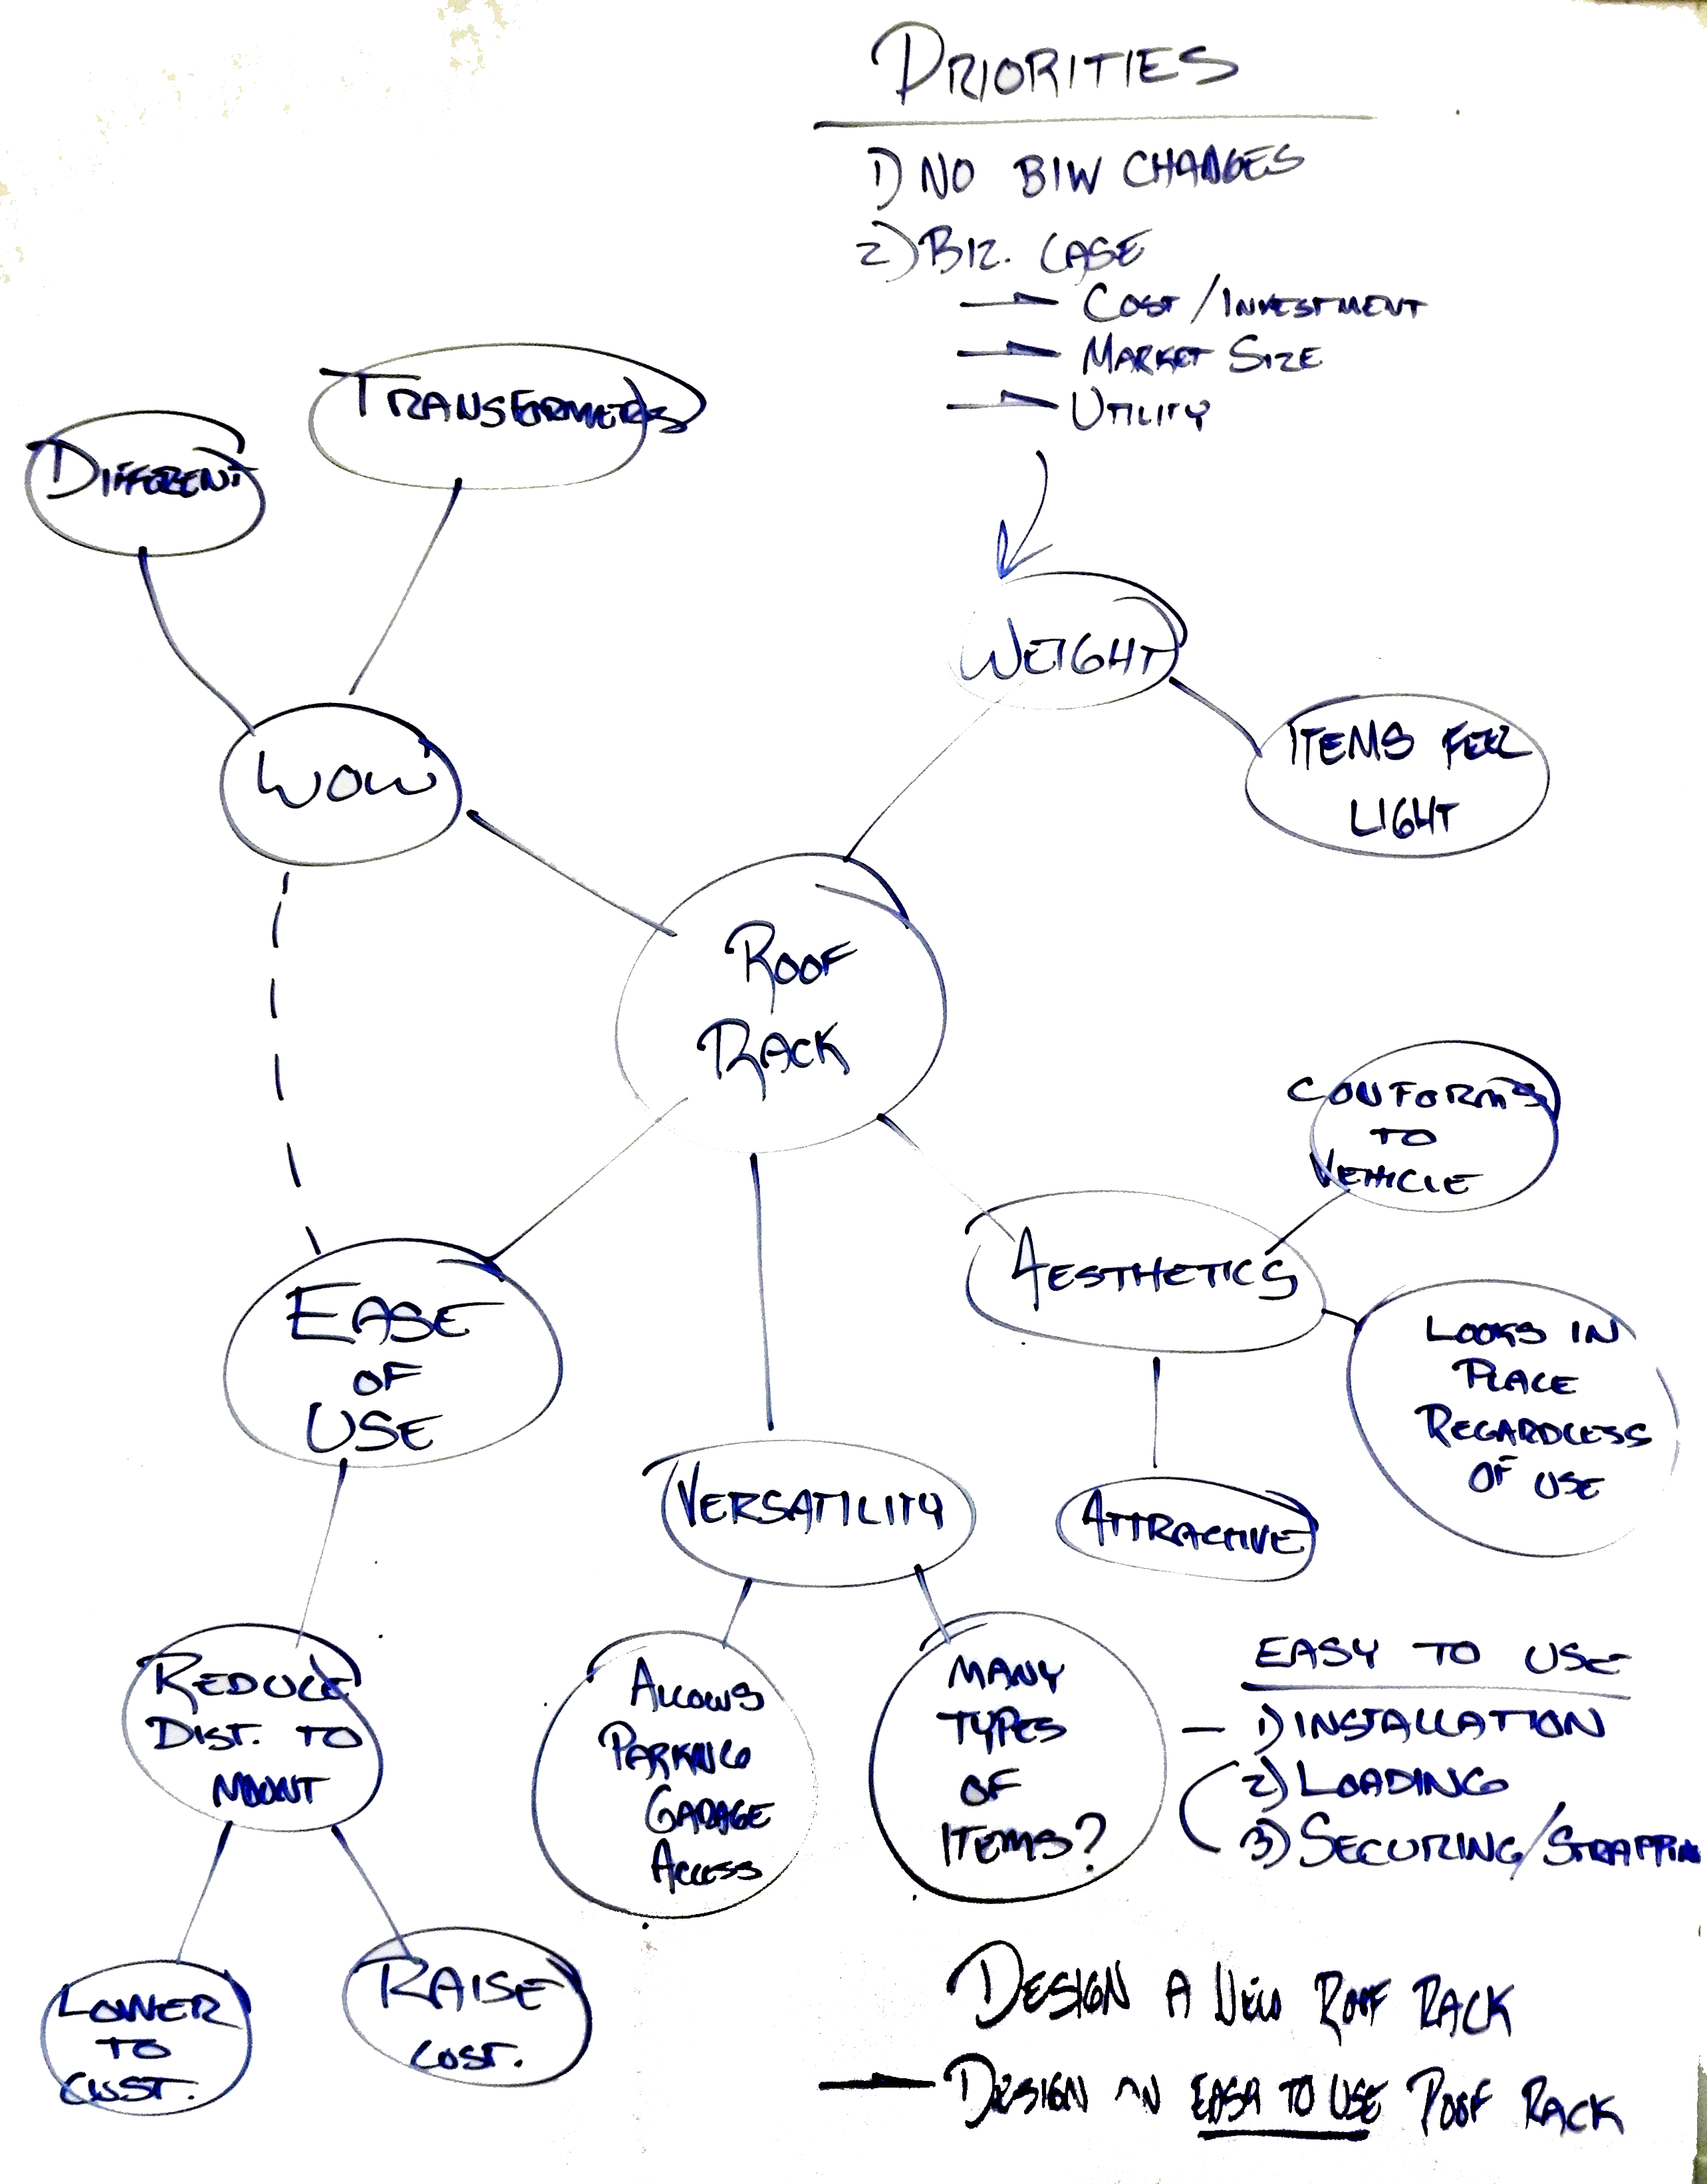 PRIORITIES
1) NO BIW CHANGES
2) BIZ. CASE
COST/INVESTMENT
MARKET SIZE
UTILITY
TRANSFORMERS
DIFFERENT
WEIGHT
ITEMS FEEL
LIGHT
WOW
ROOF
RACK
CONFORMS
TO
VEHICLE
AESTHETICS
LOOKS IN
PLACE
REGARDLESS
OF USE
EASE
OF
USE
VERSATILITY
ATTRACTIVE
REDUCE
DIST. TO
MOUNT
ALLOWS
PARKING
GARAGE
ACCESS
MANY
TYPES
OF
ITEMS?
EASY TO USE
— 1) INSTALLATION
2) LOADING
3) SECURING/STRAPPIN
LOWER
TO
CUST.
RAISE
CUST.
DESIGN A NEW ROOF RACK
DESIGN AN EASY TO USE ROOF RACK